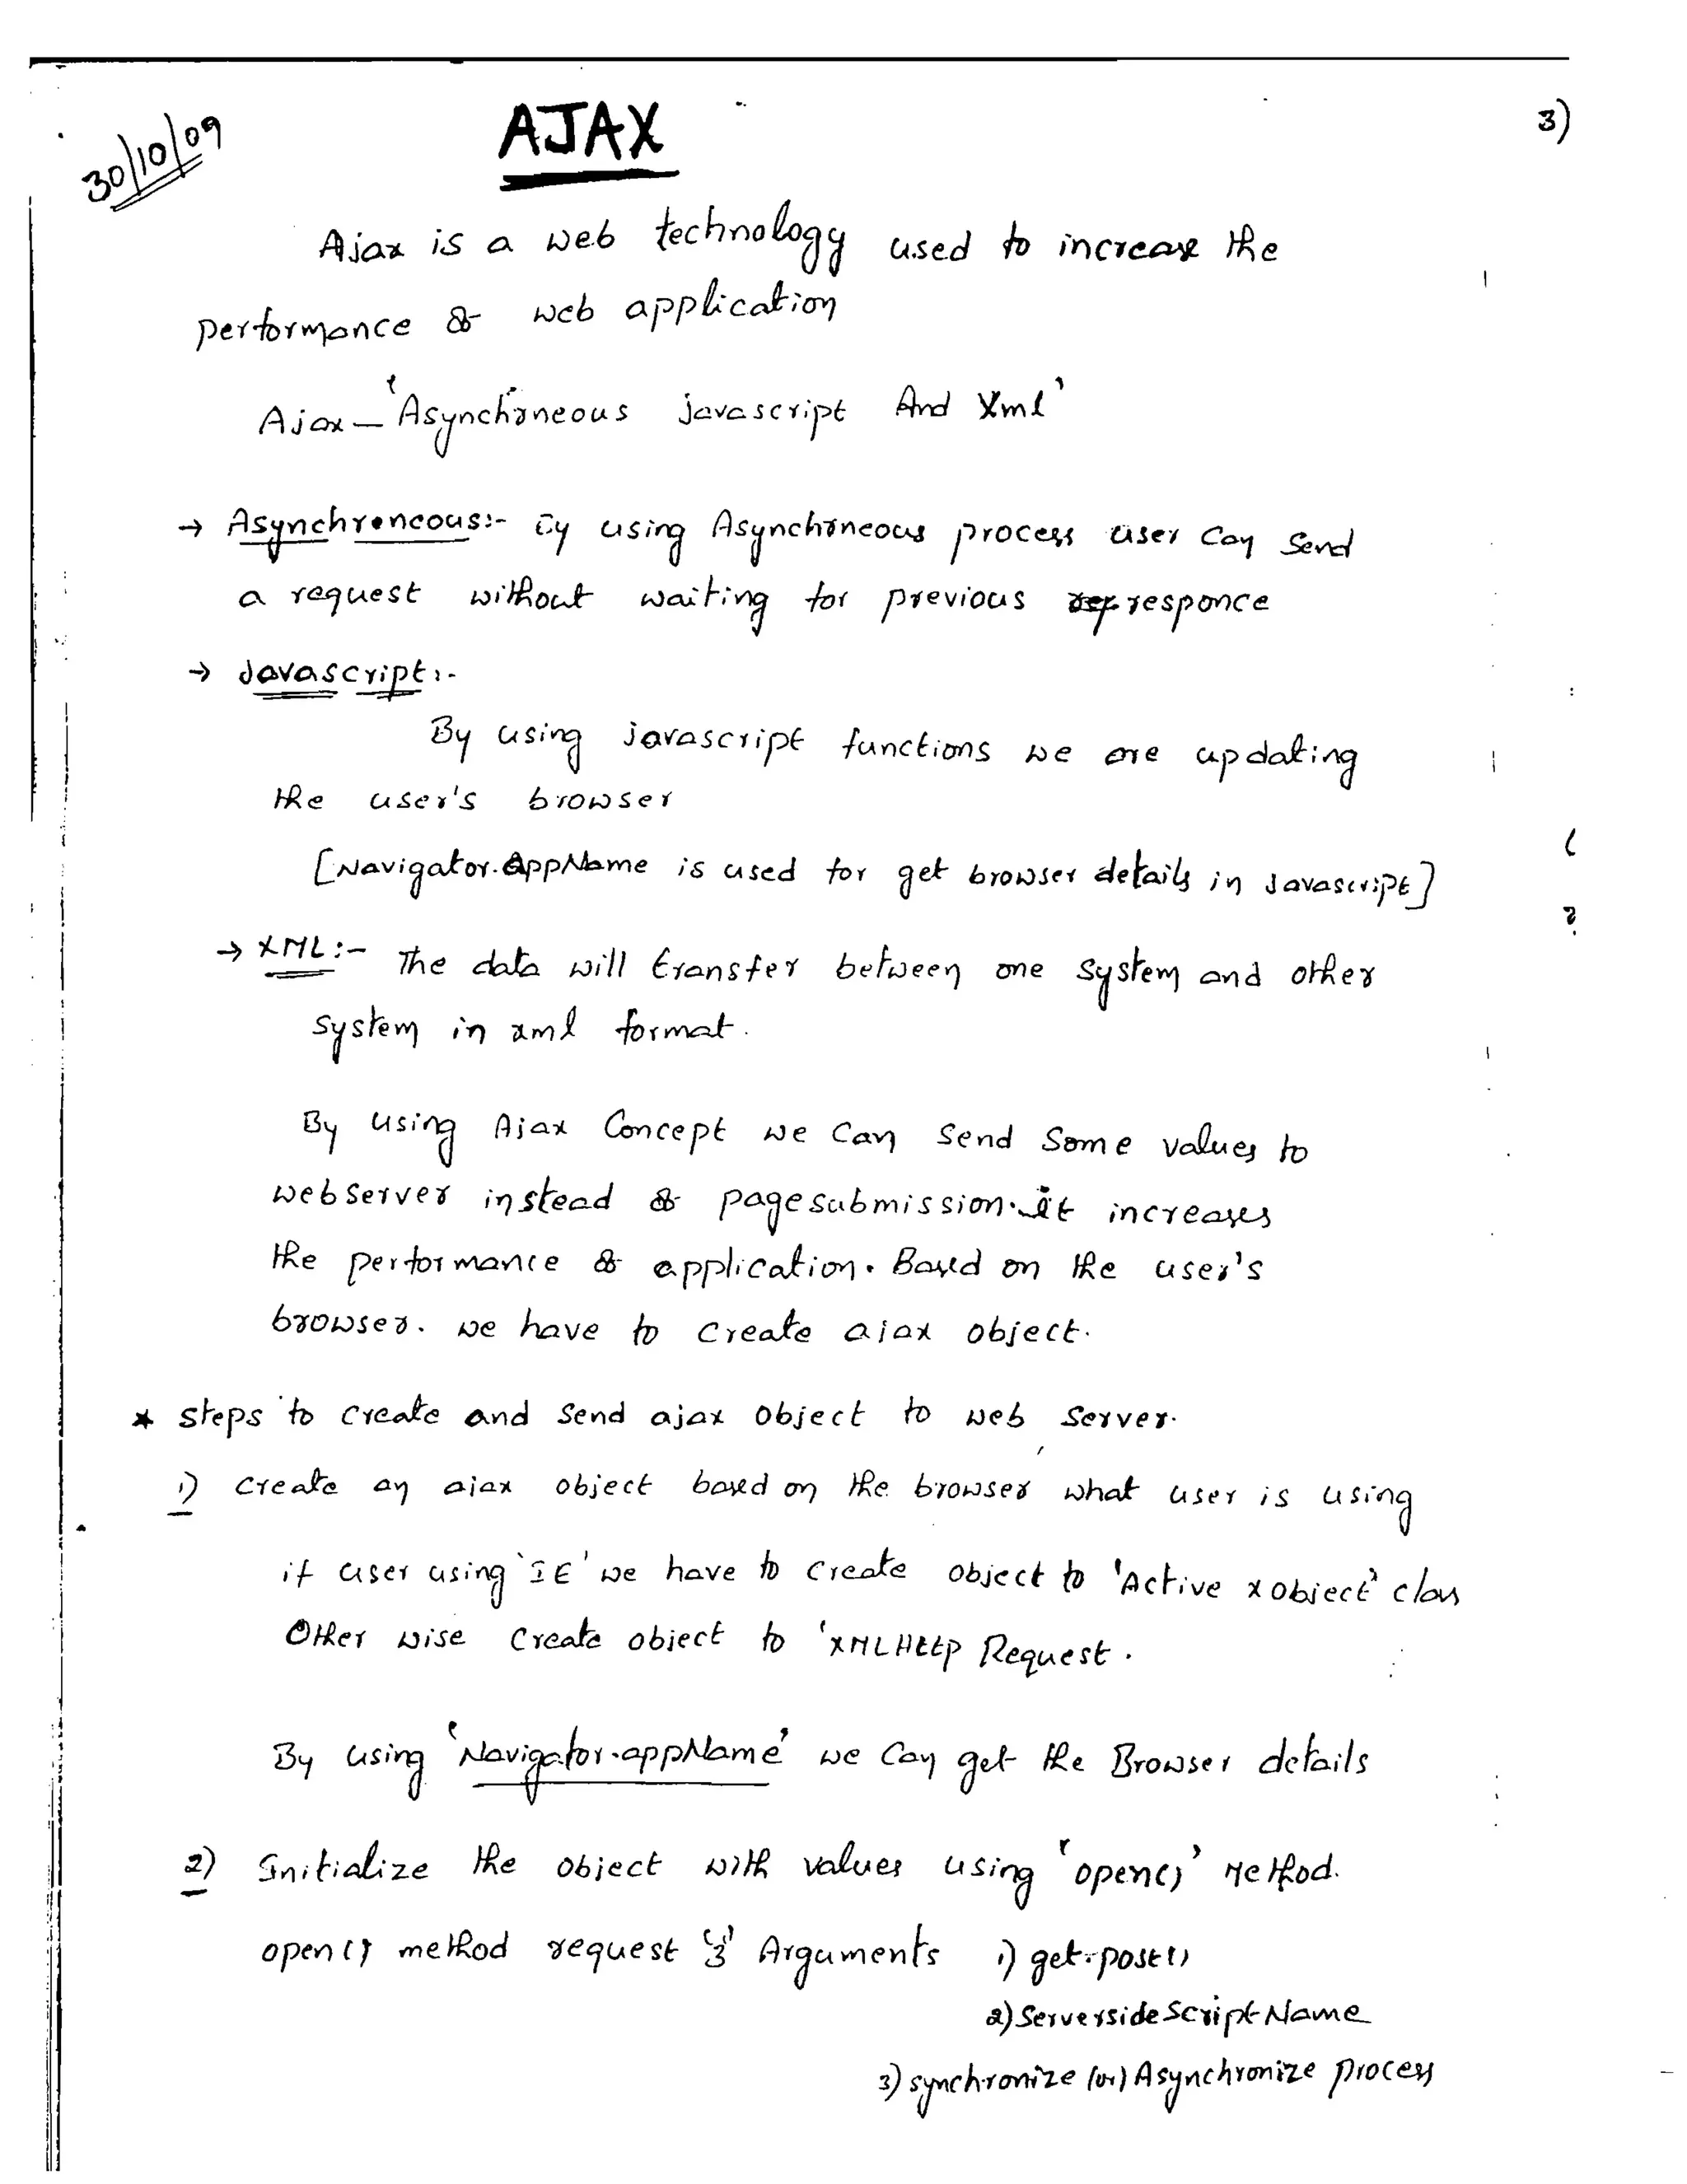 30/10/09
AJAX
3)
Ajax is a web technology used to increase the
performance of web application
Ajax – 'Asynchroneous javascript And Xml'
→ Asynchroneous:- By using Asynchroneous process user can send
a request without waiting for previous responce
→ Javascript:-
By using javascript functions we are updating
the user's browser
[Navigator.AppName is used for get browser details in Javascript]
→ XML:- The data will transfer between one system and other
system in xml format.
By using Ajax Concept we can send some values to
webserver instead of pagesubmission. It increases
the performance of application. Based on the user's
browser. we have to create ajax object.
* steps to create and send ajax object to web server.
1) create an ajax object based on the browser what user is using
if user using 'IE' we have to create object to 'Active x object' class
Other wise create object to 'XMLHttp Request.
By using 'Navigator.appName' we can get the Browser details
2) Initialize the object with values using 'open()' Method.
open() method request '3' Arguments 1) get-post()
2) Serverside Script Name
3) synchronize (or) Asynchronize process